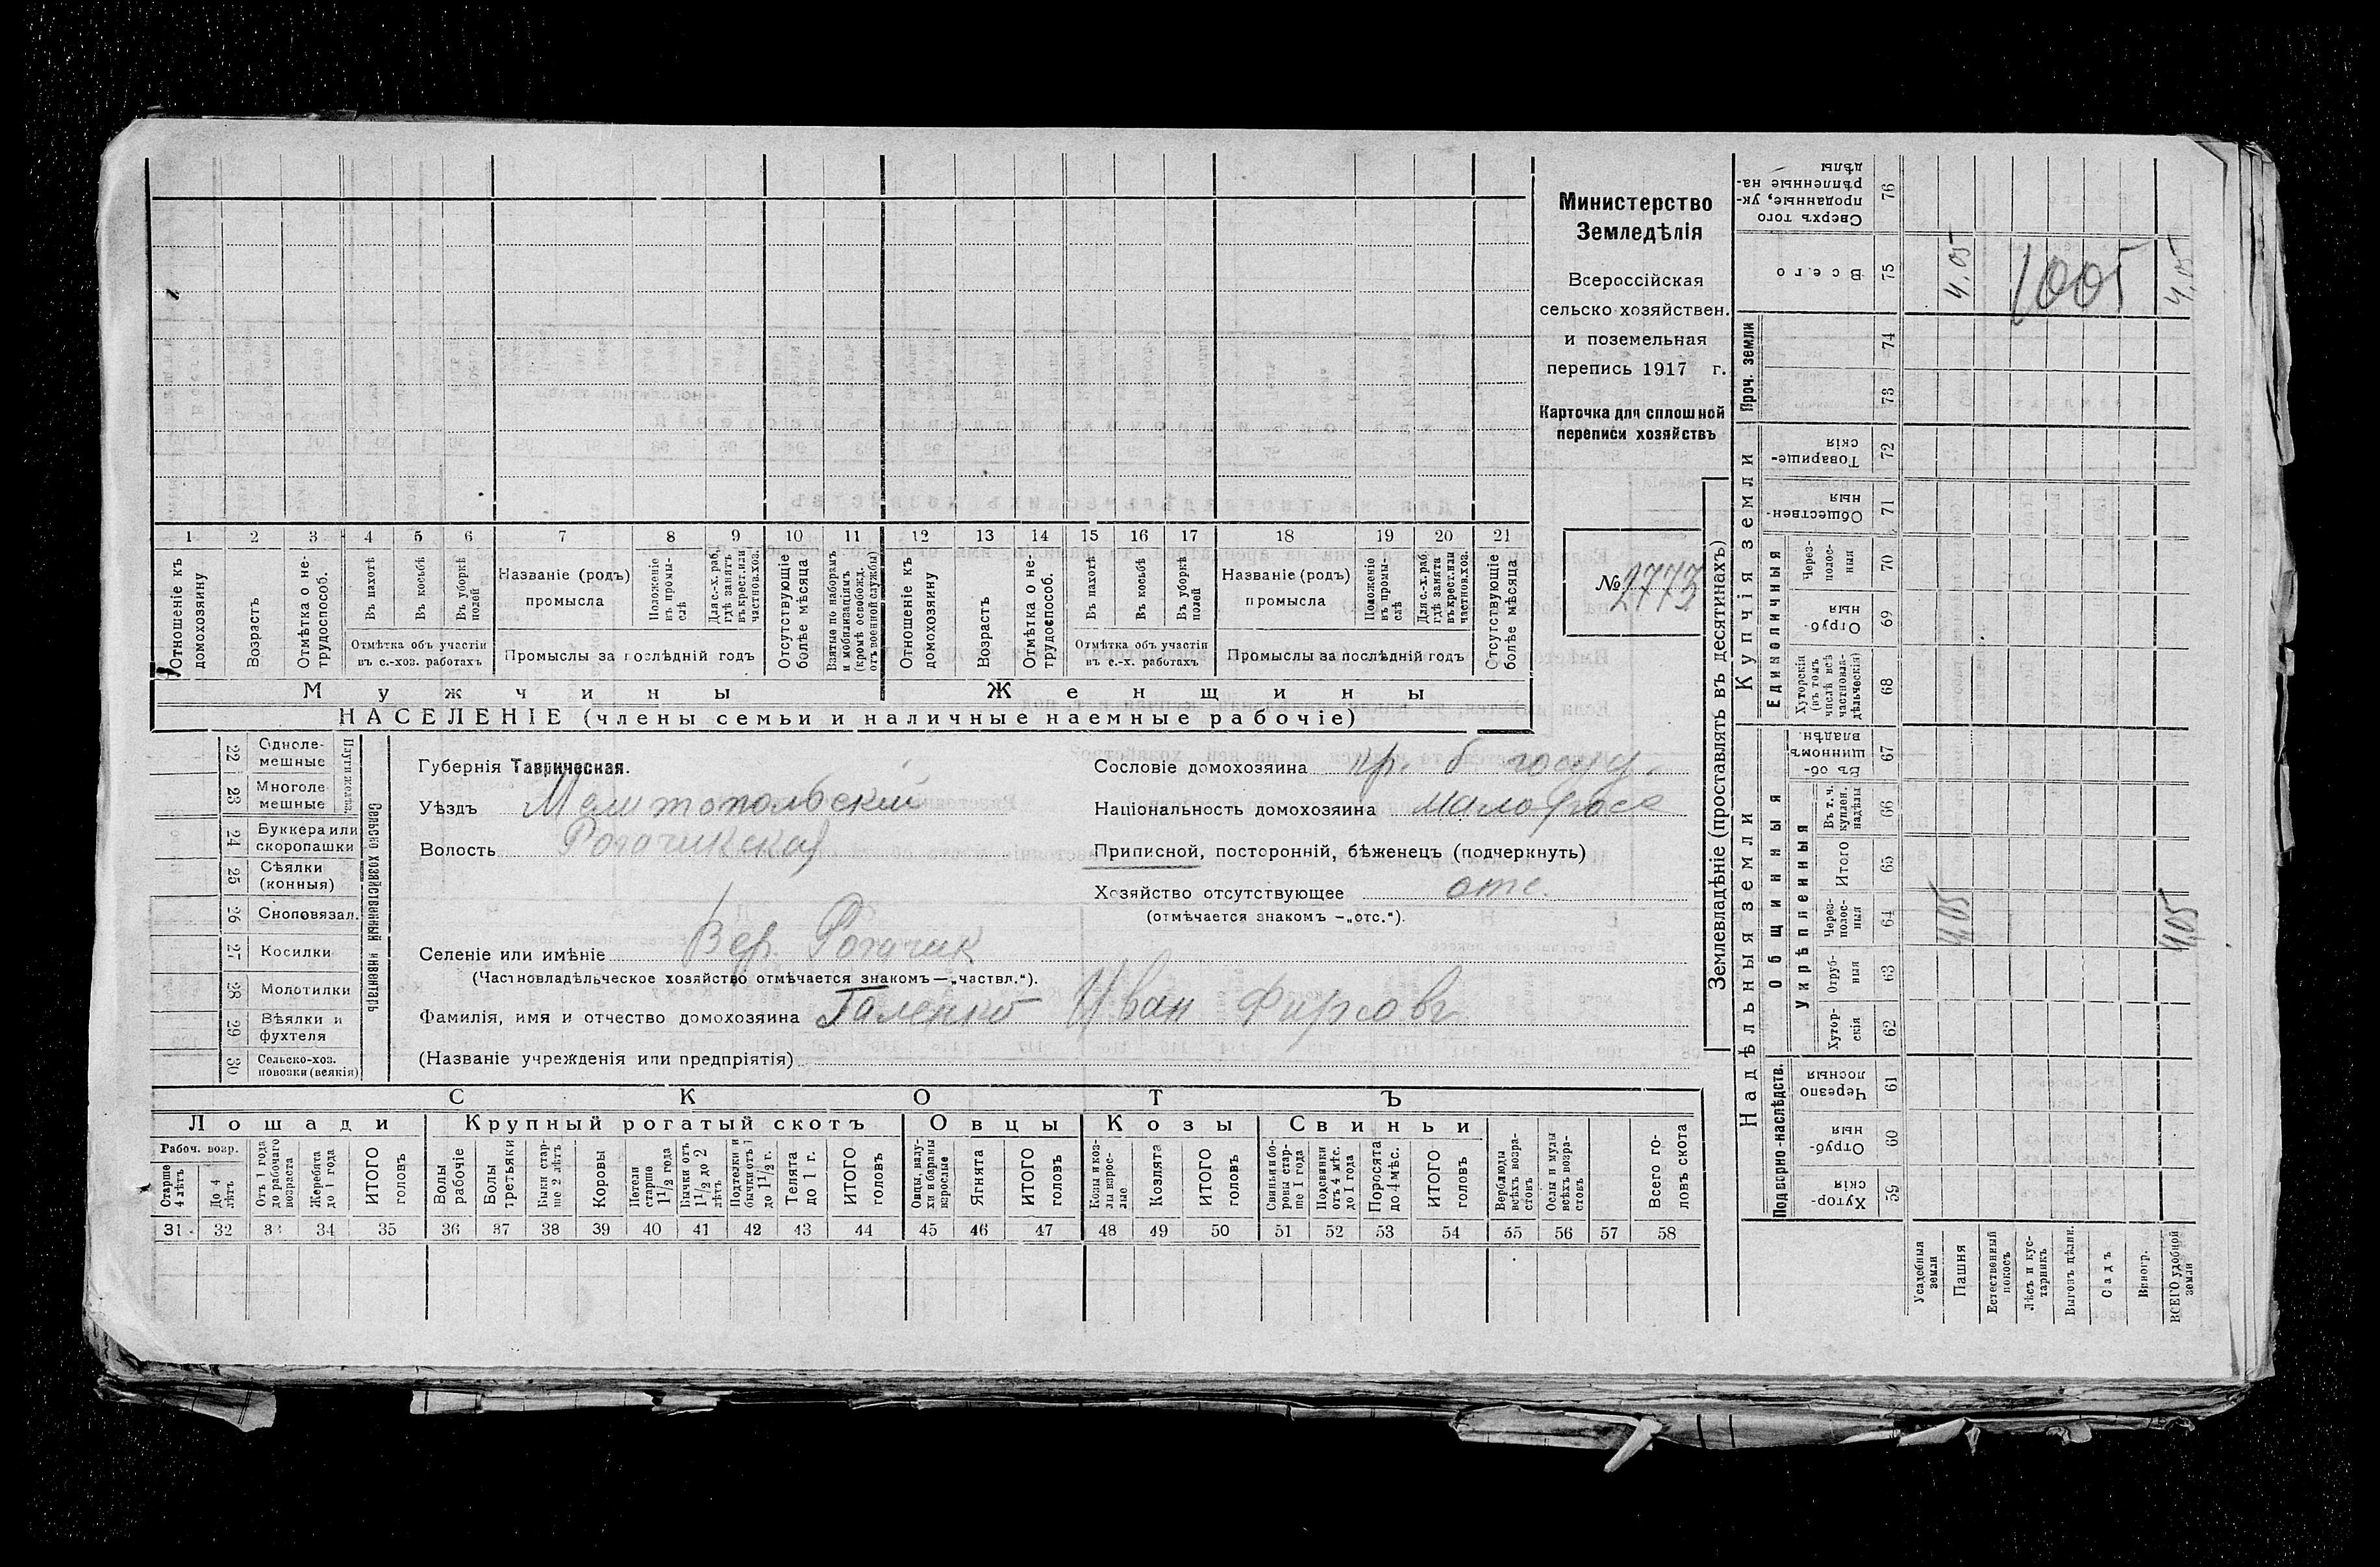 Министерство
Земледѣлія
Всероссійская
сельско-хозяйствен.
и поземельная
перепись 1917 г.
Карточка для сплошной
переписи хозяйствъ
№ 2773
1 2 3 4 5 6 7 8 9 10 11 12 13 14 15 16 17 18 19 20 21
Отношеніе къ домохозяину
Возрастъ
Отмѣтка о нетрудоспособ.
Въ пахотѣ
Въ косьбѣ
Въ уборкѣ полей
Отмѣтка объ участіи
въ с.-хоз. работахъ
Названіе (родъ)
промысла
Положеніе въ промыслѣ
Для с.-х. раб. гдѣ занятъ въ крест. или частнов. хоз.
Промыслы за послѣдній годъ
Отсутствующіе болѣе мѣсяца
Взятые по наборамъ и мобилизаціямъ (кромѣ освобожд. отъ военной службы)
Отношеніе къ домохозяину
Возрастъ
Отмѣтка о нетрудоспособ.
Въ пахотѣ
Въ косьбѣ
Въ уборкѣ полей
Отмѣтка объ участіи
въ с.-х. работахъ
Названіе (родъ)
промысла
Положеніе въ промыслѣ
Для с.-х. раб. гдѣ занята въ крест. или частнов. хоз.
Промыслы за послѣдній годъ
Отсутствующіе болѣе мѣсяца
Мужчины Женщины
НАСЕЛЕНІЕ (члены семьи и наличные наемные рабочіе)
22 Однолемешные
23 Многолемешные
24 Буккера или скоропашки
25 Сѣялки (конныя)
26 Сноповязал.
27 Косилки
28 Молотилки
29 Вѣялки и фухтеля
30 Сельско-хоз. повозки (всякія)
Сельско хозяйственный инвентарь
Губернія Таврическая.
Уѣздъ Мелитопольский
Волость Рогачикская
Селеніе или имѣніе Вер. Рогачик
(Частновладѣльческое хозяйство отмѣчается знакомъ —„частвл.“).
Фамилія, имя и отчество домохозяина Галенко Иван Фирсовъ
(Названіе учрежденія или предпріятія)
Сословіе домохозяина кр. б госуд.
Національность домохозяина малоросс
Приписной, посторонній, бѣженецъ (подчеркнуть)
Хозяйство отсутствующее отс.
(отмѣчается знакомъ —„отс.“).
СКОТЪ
Лошади Крупный рогатый скотъ Овцы Козы Свиньи
Рабоч. возр.
Старше 4 лѣтъ
До 4 лѣтъ
Отъ 1 года до рабочаго возраста
Жеребята до 1 года
ИТОГО головъ
Волы рабочіе
Волы третьяки
Быки старше 2 лѣтъ
Коровы
Нетели старше 1½ года
Бычки отъ 1½ до 2 лѣтъ
Подтелки и бычки отъ 1 до 1½ г.
Телята до 1 г.
ИТОГО головъ
Овцы, валухи и бараны взрослые
Ягнята
ИТОГО головъ
Козы и козлы взрослые
Козлята
ИТОГО головъ
Свиньи и боровы старше 1 года
Подсвинки отъ 4 мѣс. до 1 года
Поросята до 4 мѣс.
ИТОГО головъ
Верблюды всѣхъ возрастовъ
Ослы и мулы всѣхъ возрастовъ
Всего головъ скота
31 32 33 34 35 36 37 38 39 40 41 42 43 44 45 46 47 48 49 50 51 52 53 54 55 56 57 58
Землевладѣніе (проставлять въ десятинахъ)
Надѣльныя земли
Купчія земли
Проч. земли
Подворно-наслѣдств.
Общинныя
Укрѣпленныя
Единоличныя
76 Сверхъ того проданные, укрѣпленные надѣлы
75 Всего 4,05 1005 4,05
74
73
72 Товарищескія
71 Общественныя
70 Черезполосныя
69 Отрубныя
68 Хуторскія (въ томъ числѣ всѣ частновладѣльческія)
67 Въ общинномъ владѣн.
66 Въ т. ч. куплен. надѣлы
65 Итого
64 Черезполосныя 4,05 4,05
63 Отрубныя
62 Хуторскія
61 Черезполосныя
60 Отрубныя
59 Хуторскія
Усадебныя земли
Пашня
Естественный покосъ
Лѣсъ и кустарникъ
Выгонъ цѣлин.
Садъ
Виногр.
ВСЕГО удобной земли